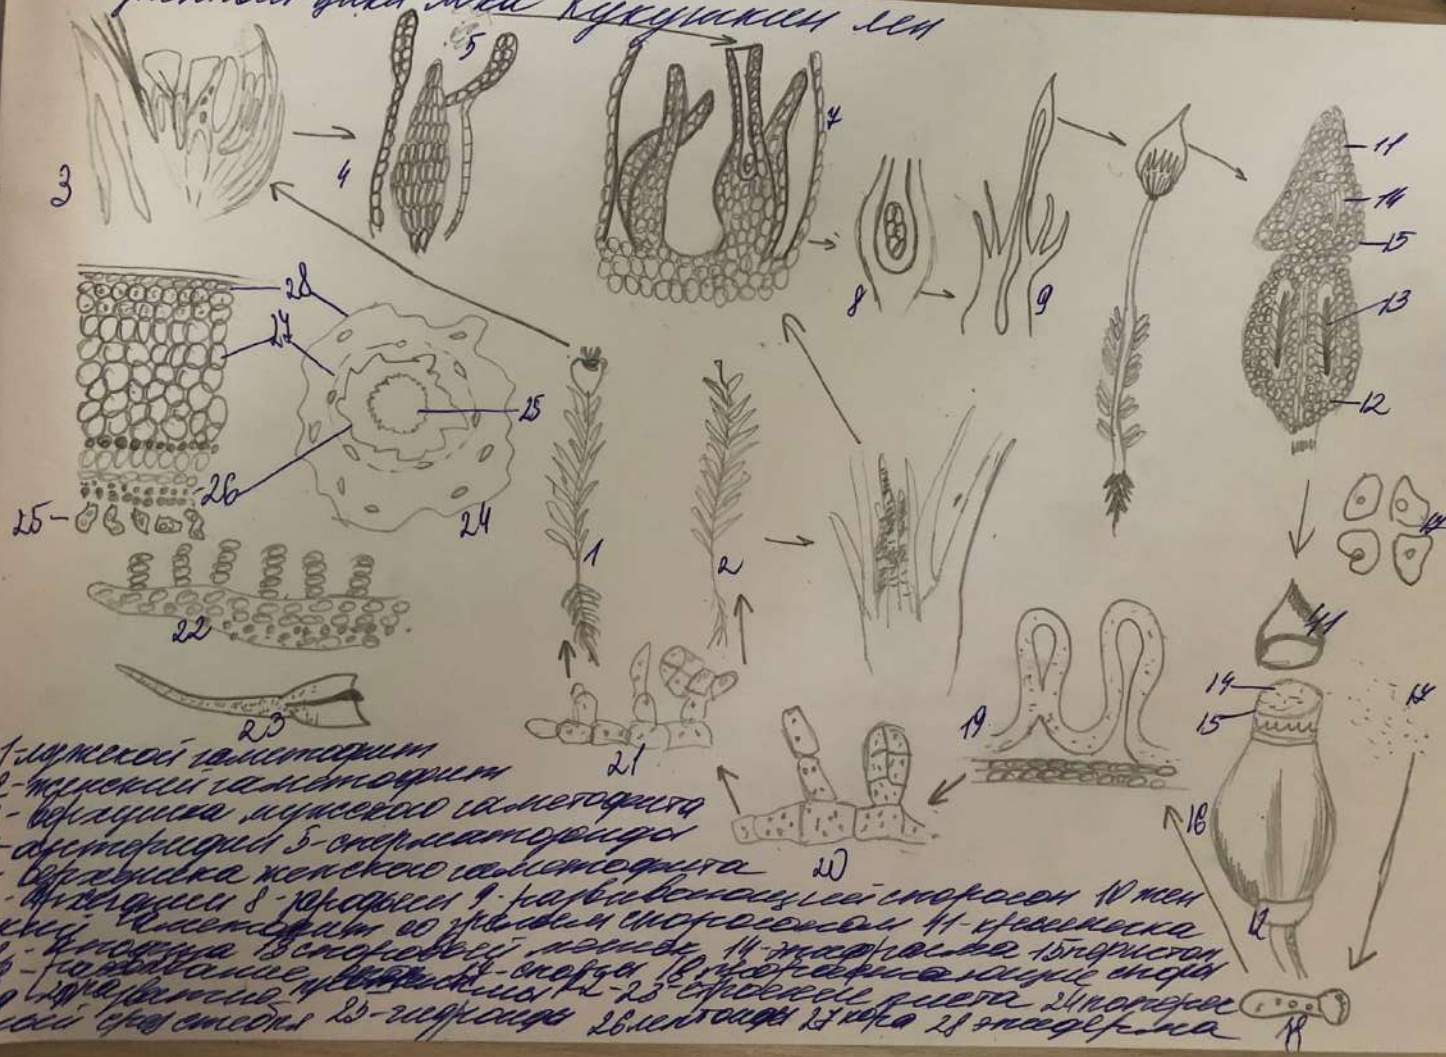 цикл мха Кукушкин лен
5
3
4
7
8
9
11
14
15
13
12
28
27
25
26
25
24
1
2
22
23
21
20
19
11
14
15
17
16
12
18
1-мужской гаметофит
2-женский гаметофит
- верхушка мужского гаметофита
- антеридии 5-сперматозоиды
- верхушка женского гаметофита
- архегонии 8-зародыш 9-развивающийся спорогон 10 жен
гаметофит со зрелым спорогоном 11-крышечка
13 споровый мешок 14-эпифрагма 15 перистом
17-споры 18 прорастающие споры
22-23-строение листа 24 попереч
ный срез стебля 25-гидроиды 26 лептоиды 27 кора 28 эпидерма